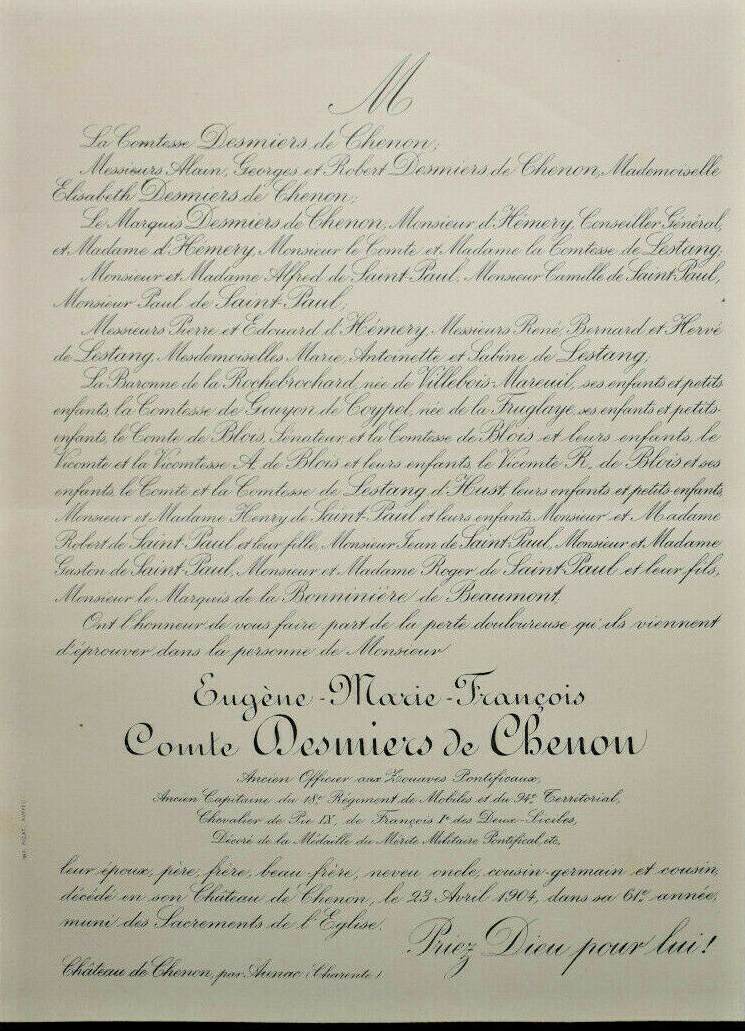 M
La Comtesse Desmiers de Chenon;
Messieurs Alain, Georges et Robert Desmiers de Chenon, Mademoiselle
Elisabeth Desmiers de Chenon;
Le Marquis Desmiers de Chenon, Monsieur d'Hémery, Conseiller Général,
et Madame d'Hémery, Monsieur le Comte et Madame la Comtesse de Lestang;
Monsieur et Madame Alfred de Saint-Paul, Monsieur Camille de Saint-Paul,
Monsieur Paul de Saint-Paul;
Messieurs Pierre et Edouard d'Hémery, Messieurs René, Bernard et Hervé
de Lestang, Mesdemoiselles Marie, Antoinette et Sabine de Lestang;
La Baronne de la Rochebrochard, née de Villebois-Mareuil, ses enfants et petits
enfants, la Comtesse de Gouyon de Coypel, née de la Fruglaye, ses enfants et petits-
enfants, le Comte de Blois, Sénateur, et la Comtesse de Blois et leurs enfants, le
Vicomte et la Vicomtesse A. de Blois et leurs enfants, le Vicomte R. de Blois et ses
enfants, le Comte et la Comtesse de Lestang d'Hust, leurs enfants et petits-enfants,
Monsieur et Madame Henry de Saint-Paul et leurs enfants, Monsieur et Madame
Robert de Saint-Paul et leur fille, Monsieur Jean de Saint-Paul, Monsieur et Madame
Gaston de Saint-Paul, Monsieur et Madame Roger de Saint-Paul et leur fils,
Monsieur le Marquis de la Bonninière de Beaumont,
Ont l'honneur de vous faire part de la perte douloureuse qu'ils viennent
d'éprouver dans la personne de Monsieur
Eugène-Marie-François
Comte Desmiers de Chenon
Ancien Officier aux Zouaves Pontificaux,
Ancien Capitaine du 18e Régiment de Mobiles et du 94e Territorial,
Chevalier de Pie IX, de François Ier des Deux-Siciles,
Décoré de la Médaille du Mérite Militaire Pontifical, etc,
leur époux, père, frère, beau-frère, neveu, oncle, cousin-germain et cousin,
décédé en son Château de Chenon, le 23 Avril 1904, dans sa 61e année,
muni des Sacrements de l'Eglise.
Priez Dieu pour lui!
Château de Chenon, par Aunac (Charente)